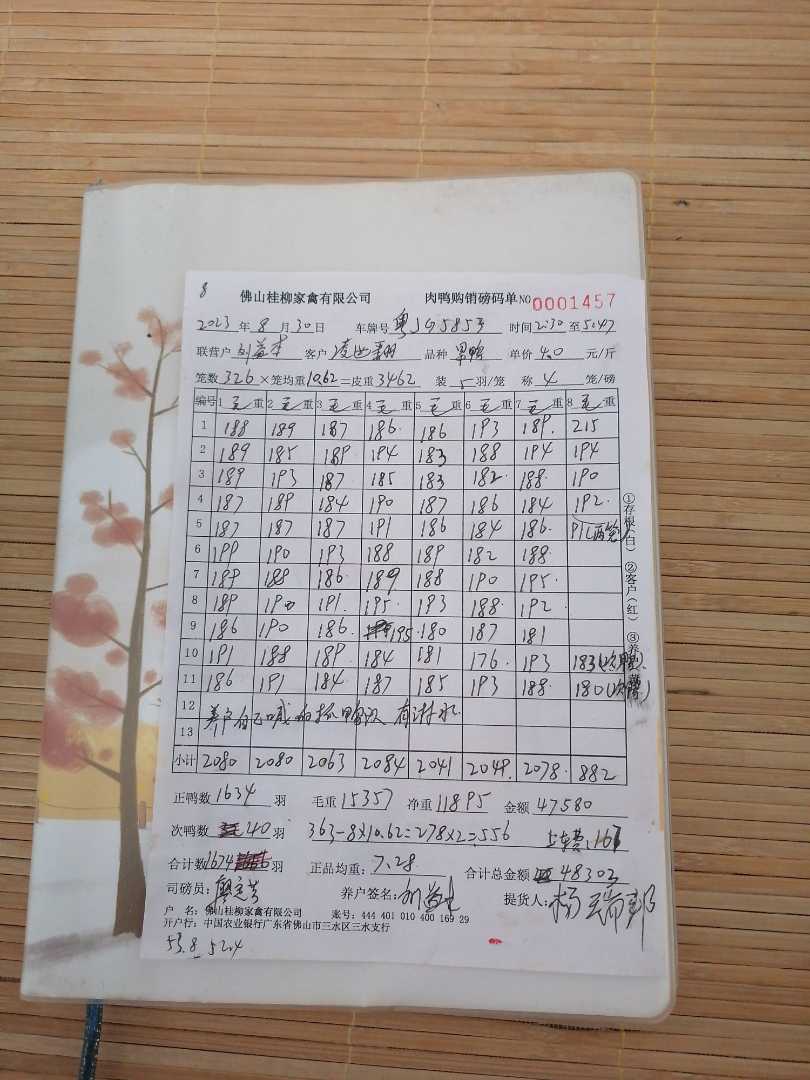 8 佛山桂柳家禽有限公司 肉鸭购销磅码单 NO 0001457
2023 年 8 月 30 日 车牌号 粤J 时间 2:30 至 5:47
联营户 客户 品种 单价 4.0 元/斤
笼数 326 ×笼均重 10.62 =皮重 3462 装 5 羽/笼 称 4 笼/磅
编号 1 毛 重 2 毛 重 3 毛 重 4 毛 重 5 毛 重 6 毛 重 7 毛 重 8 毛 重
1 188 189 187 186 186 193 189 215
2 189 185 189 194 183 188 194 194
3 189 193 187 185 183 182 188 190
4 187 189 184 190 187 186 184 192
5 187 187 187 191 186 184 186
6 199 190 193 188 189 182 188
7 189 188 186 189 188 190 195
8 189 190 191 195 193 188 192
9 186 190 186 195 180 187 181
10 191 188 189 184 181 176 193 183
11 186 191 184 187 185 193 188 180
12 养户自己喊 有淋水
13
小计 2080 2080 2063 2084 2041 2049 2078 882
正鸭数 1634 羽 毛重 15357 净重 11895 金额 47580
次鸭数 40 羽 363-8×10.62=278×2=556
合计数 1674 羽 正品均重: 7.28 合计总金额 48302
司磅员: 养户签名: 提货人:
户 名: 佛山桂柳家禽有限公司 账号: 444 401 010 400 169 29
开户行: 中国农业银行广东省佛山市三水区三水支行
53.8 52.4
①存根(白) ②客户(红)